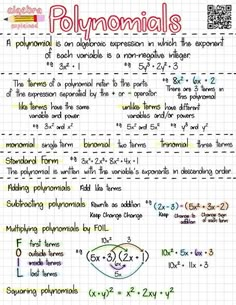 algebra
explained
Polynomials
A polynomial is an algebraic expression in which the exponent
of each variable is a non-negative integer.
eg 3x² + 1
eg 5y³ + 2y² + 3
The terms of a polynomial refer to the parts
of the expression separated by the + or - operator.
eg 8x² + 6x + 2
There are 3 terms in
this polynomial
like terms have the same
variable and power.
unlike terms have different
variables and/or powers
eg 3x² and x²
eg 5x and 5x²
eg y² and y³
monomial single term
binomial two terms
trinomial three terms
Standard Form
The polynomial is written with the variable's exponents in descending order.
Adding polynomials Add like terms
Subtracting polynomials Rewrite as addition
Keep Change Change
eg (2x - 3) - (5x² + 3x - 2)
Keep
Change to
addition
Change sign
of each term
Multiplying polynomials by FOIL
First terms
Outside terms
Inside terms
Last terms
(5x + 3)(2x + 1)
5x
10x² + 5x + 6x + 3
10x² + 11x + 3
Squaring polynomials
(x + y)² = x² + 2xy + y²